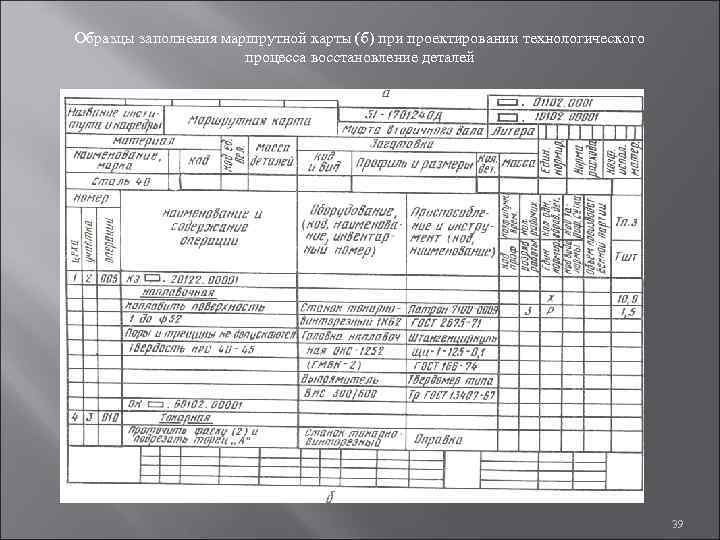 Образцы заполнения маршрутной карты (б) при проектировании технологического
процесса восстановление деталей
а
Название инсти-
тута и кафедры
Маршрутная карта
51-1701240Д
Муфта вторичного вала
Литера
. 01102.0001
. 10102.0001
Материал
Заготовка
наименование,
марка
код
код ед.
вел.
масса
деталей
код
и вид
Профиль и размеры
Кол.
дет.
масса
Един.
нормир.
Норма
расхода
Коэф.
испол.
матер.
Сталь 40
номер
цеха
участка
операции
наименование и
содержание
операции
Оборудование,
(код, наименова-
ние, инвентар-
ный номер)
Приспособле-
ние и инстру-
мент (код,
наименование)
код
проф.
разряд
работы
Тп.з
Тшт
1 2 005 КЭ . 20122.00001
наплавочная
наплавить поверхность
1 до ф52
Поры и трещины не допускаются
Твердость HRC 40-45
Станок токарно-
винторезный 1К62
Головка наплавоч-
ная ОКС-1252
(ГМВК-2)
Выпрямитель
ВНС 300/600
Патрон 7100-0009
ГОСТ 2675-71
Штангенциркуль
ШЦ-1-125-0,1
ГОСТ 166-74
Твердомер типа
Тр ГОСТ 13407-67
Х 10,0
3 Р 1,5
ОК . 60102.00001
4 3 010 Токарная
Проточить фаску (2) и
подрезать торец „А"
Станок токарно-
винторезный
Оправка
б
39